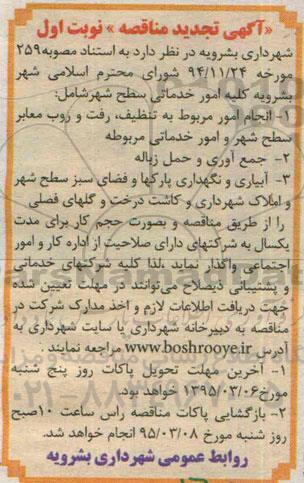 «آگهی تجدید مناقصه » نوبت اول
شهرداری بشرویه در نظر دارد به استناد مصوبه۲۵۹
مورخه ۹۴/۱۱/۲۴ شورای محترم اسلامی شهر
بشرویه کلیه امور خدماتی سطح شهرشامل:
۱- انجام امور مربوط به تنظیف، رفت و روب معابر
سطح شهر و امور خدماتی مربوطه
۲- جمع آوری و حمل زباله
۳- آبیاری و نگهداری پارکها و فضای سبز سطح شهر
و املاک شهرداری و کاشت درخت و گلهای فصلی
را از طریق مناقصه و بصورت حجم کار برای مدت
یکسال به شرکتهای دارای صلاحیت از اداره کار و امور
اجتماعی واگذار نماید .لذا کلیه شرکتهای خدماتی
و پشتیبانی ذیصلاح می‌توانند در مهلت تعیین شده
جهت دریافت اطلاعات لازم و اخذ مدارک شرکت در
مناقصه به دبیرخانه شهرداری یا سایت شهرداری به
آدرس www.boshrooye.ir مراجعه نمایند .
۱- آخرین مهلت تحویل پاکات روز پنج شنبه
مورخ۱۳۹۵/۰۳/۰۶ خواهد بود.
۲- بازگشایی پاکات مناقصه راس ساعت ۱۰صبح
روز شنبه مورخ ۹۵/۰۳/۰۸ انجام خواهد شد.
روابط عمومی شهرداری بشرویه